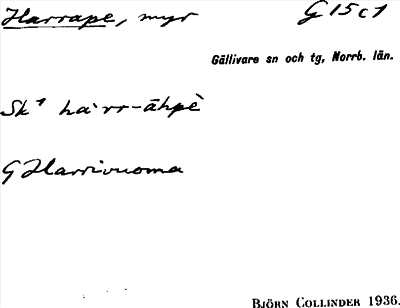 Harrape, myr G 15 c 1
Gällivare sn och tg, Norrb. län.
Sk¹ hàrr-āhpè
G Harrivuoma
BJÖRN COLLINDER 1936.